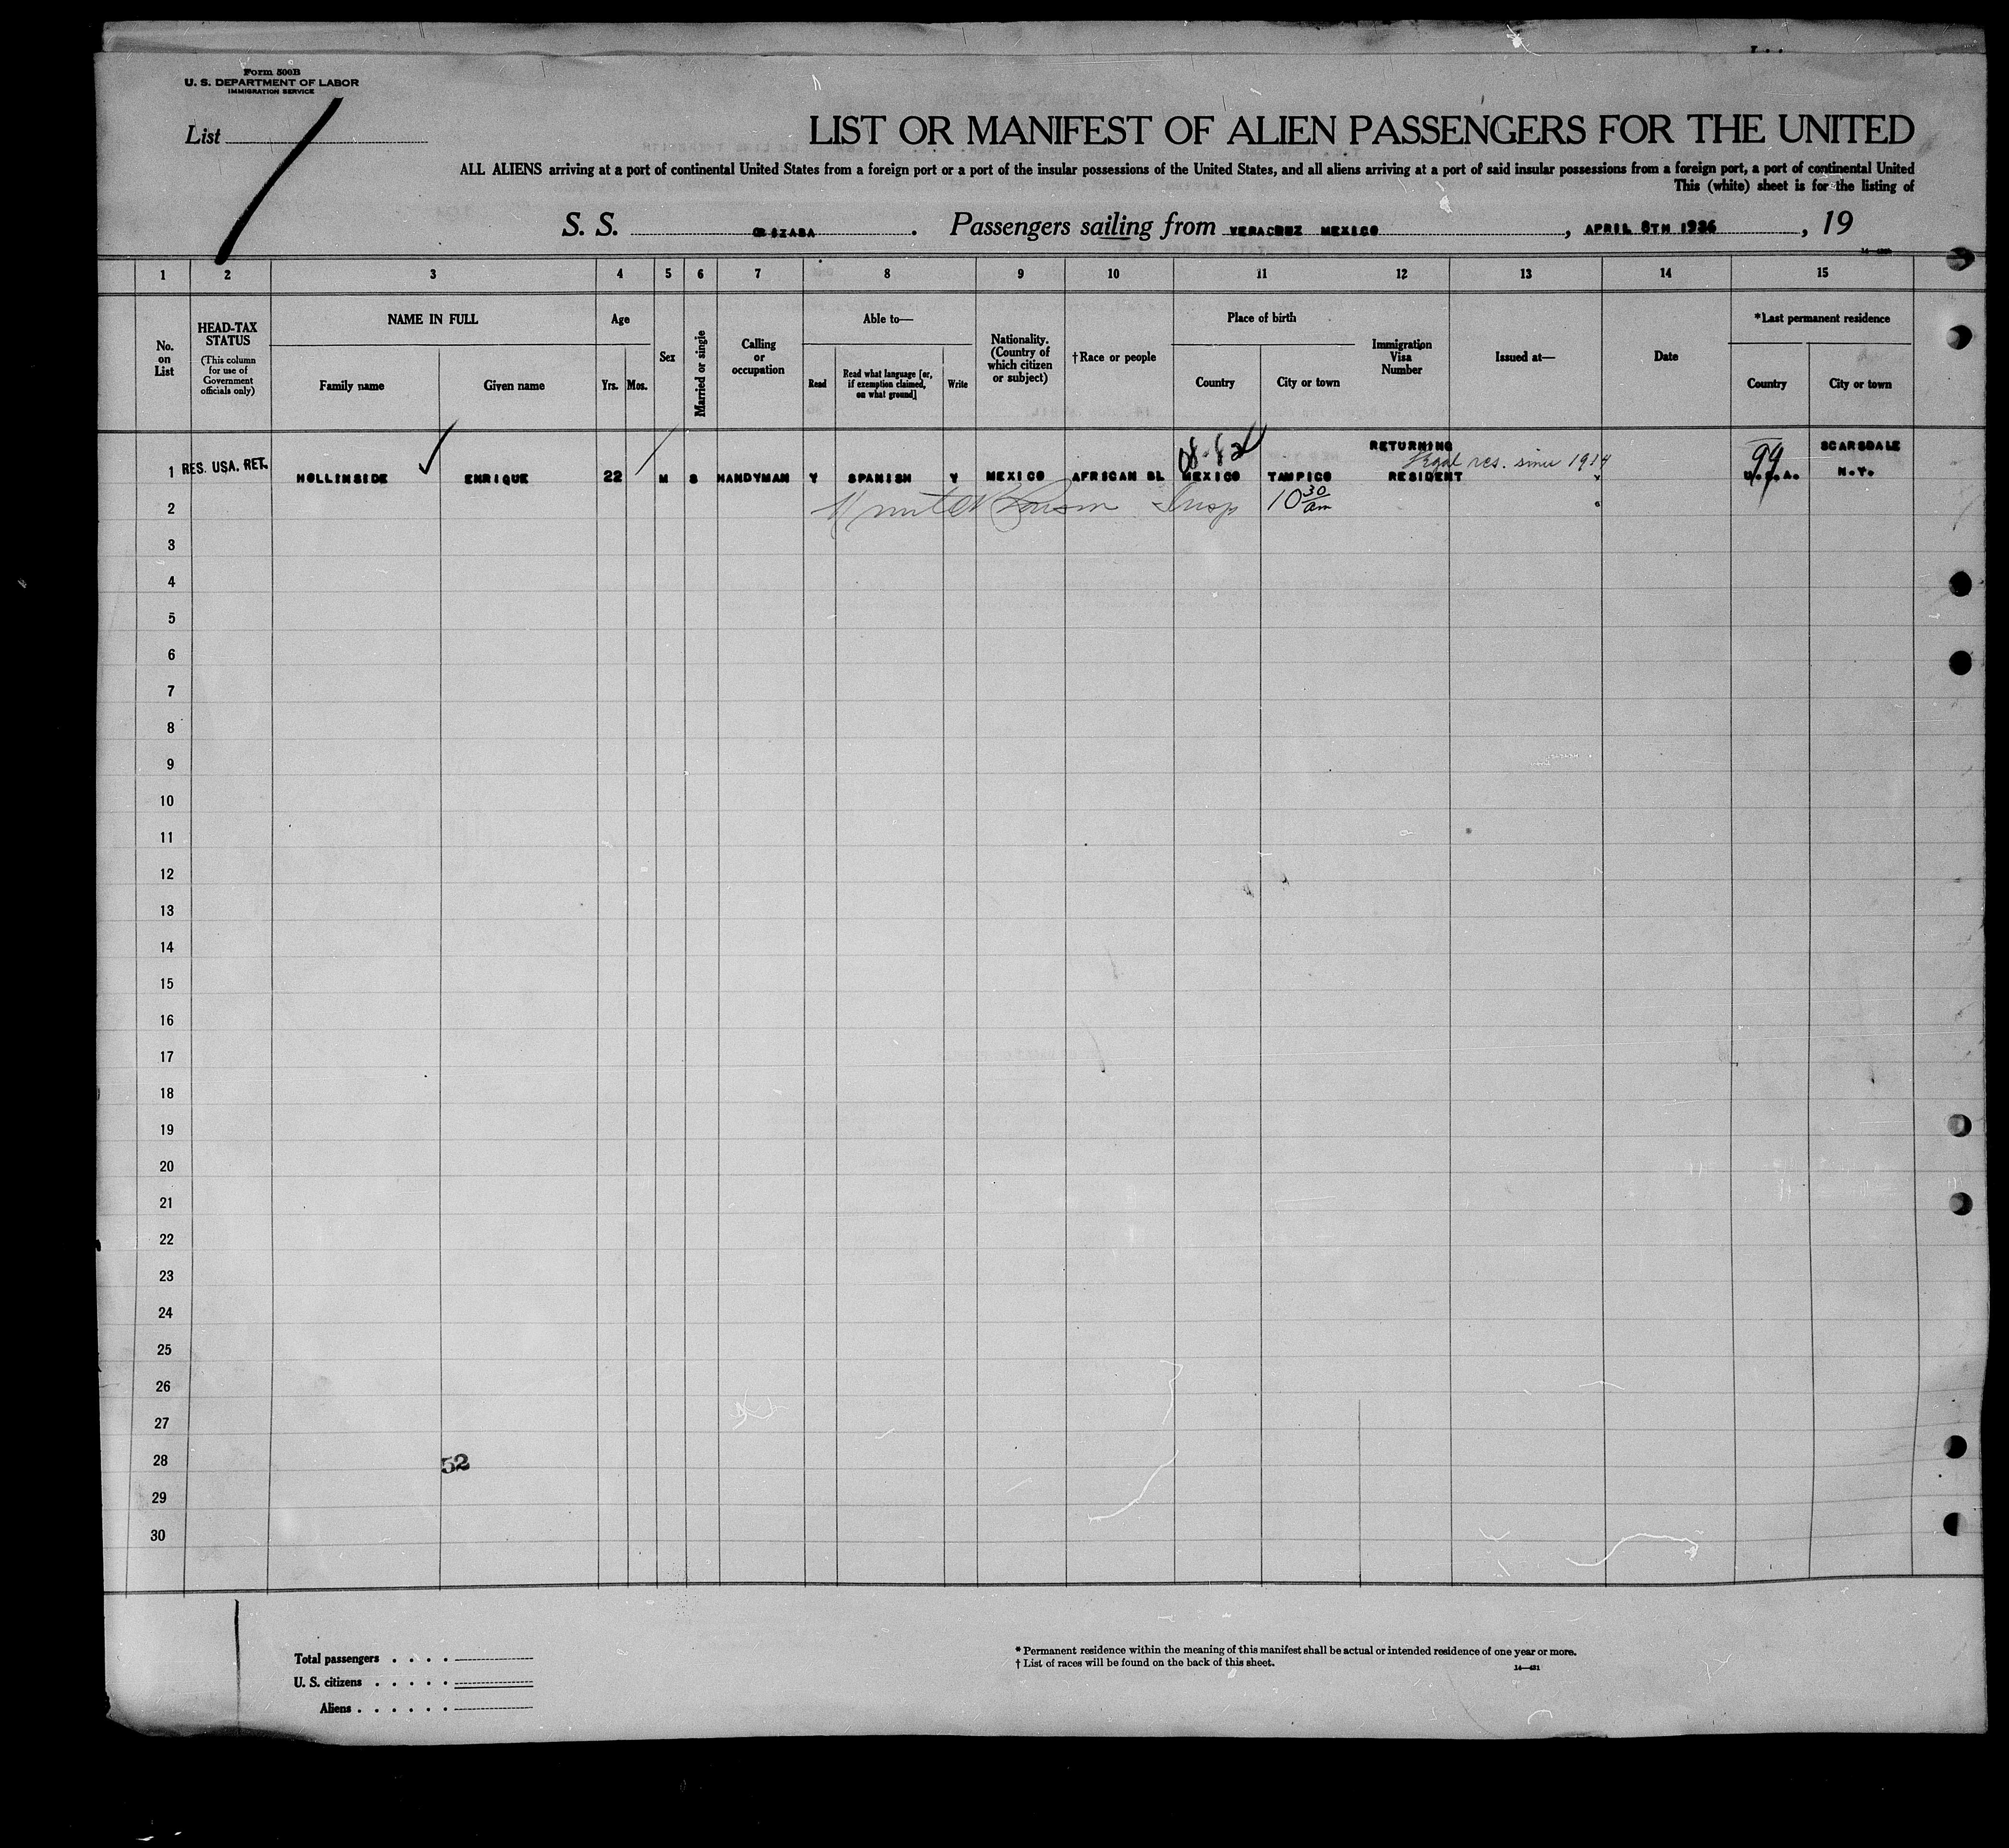 Form 500B
U. S. DEPARTMENT OF LABOR
IMMIGRATION SERVICE
List
LIST OR MANIFEST OF ALIEN PASSENGERS FOR THE UNITED
ALL ALIENS arriving at a port of continental United States from a foreign port or a port of the insular possessions of the United States, and all aliens arriving at a port of said insular possessions from a foreign port, a port of continental United
This (white) sheet is for the listing of
S. S. ORIZABA . Passengers sailing from VERACRUZ MEXICO , APRIL 8TH 1936 , 19
1 2 3 4 5 6 7 8 9 10 11 12 13 14 15
No. on List
HEAD-TAX STATUS
(This column for use of Government officials only)
NAME IN FULL
Family name
Given name
Age
Yrs. Mos.
Sex
Married or single
Calling or occupation
Able to—
Read
Read what language [or, if exemption claimed, on what ground]
Write
Nationality. (Country of which citizen or subject)
†Race or people
Place of birth
Country
City or town
Immigration Visa Number
Issued at—
Date
*Last permanent residence
Country
City or town
RETURNING SCARSDALE
legal res. since 1914 99
1 RES. USA. RET. HOLLINSIDE ENRIQUE 22 M S HANDYMAN Y SPANISH Y MEXICO AFRICAN BL MEXICO TAMPICO RESIDENT U.S.A. N.Y.
2 Insp 10 30 am
3
4
5
6
7
8
9
10
11
12
13
14
15
16
17
18
19
20
21
22
23
24
25
26
27
28 52
29
30
Total passengers . . . .
U. S. citizens . . . . .
Aliens . . . . . .
* Permanent residence within the meaning of this manifest shall be actual or intended residence of one year or more.
† List of races will be found on the back of this sheet.